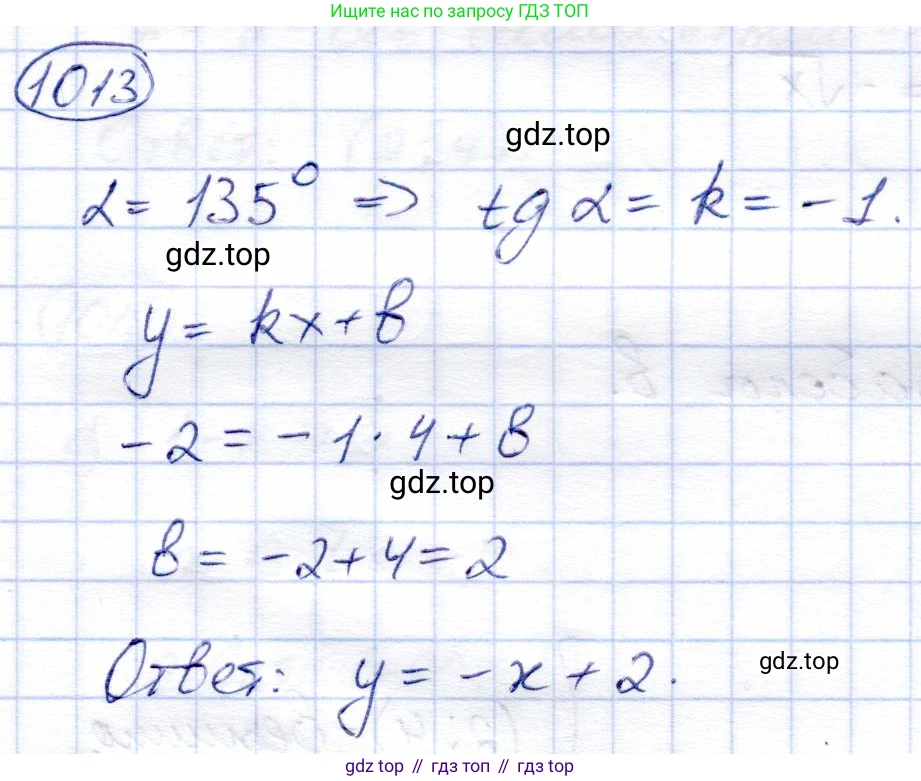 Ищите нас по запросу ГДЗ ТОП
1013
gdz.top
α = 135° => tg α = k = -1.
gdz.top
y = kx + b
-2 = -1 · 4 + b
gdz.top
b = -2 + 4 = 2
Ответ: y = -x + 2.
gdz.top
gdz.top // гдз топ // gdz top